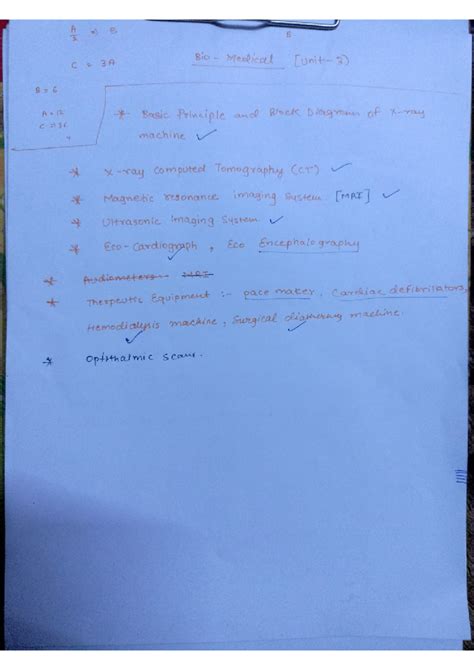 A/3 = B
B
C = 3A
Bio-Medical [Unit-3]
B = 6
A = 12
C = 36
* Basic Principle and Block Diagram of X-ray
machine
* X-ray computed Tomography (CT)
* Magnetic resonance imaging System [MRI]
* Ultrasonic imaging System
* Eco-Cardiograph, Eco Encephalography
* Audiometers -- MRI
* Therpeutic Equipment :- pace maker, Cardiac defibrilators,
Hemodialysis machine, Surgical diathermy machine.
* Ophthalmic Scans.